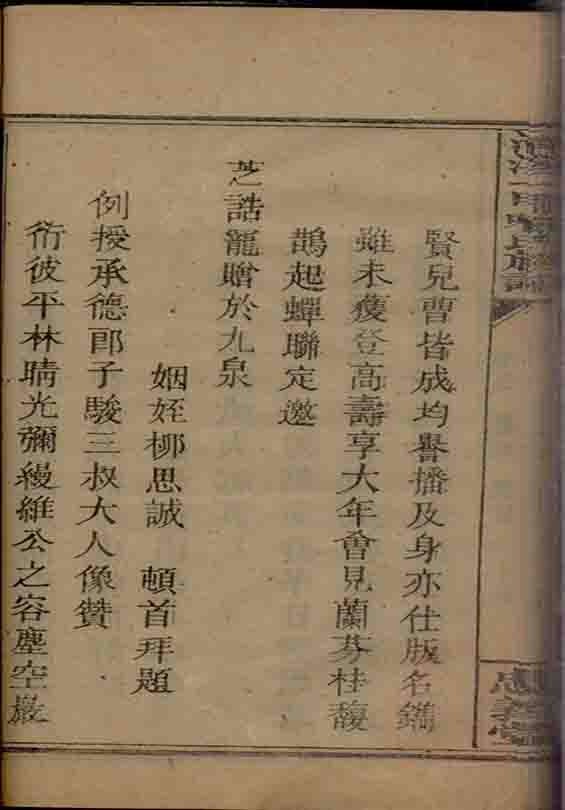 賢兒曹皆成均譽播及身亦仕版名鐫
雖未獲登高壽享大年會見蘭芬桂馥
鵲起蟬聯定邀
芝誥寵贈於九泉
姻姪柳思誠 頓首拜題
例授承德郎子駿三叔大人像贊
衖彼平林晴光彌縵維公之容塵空嚴